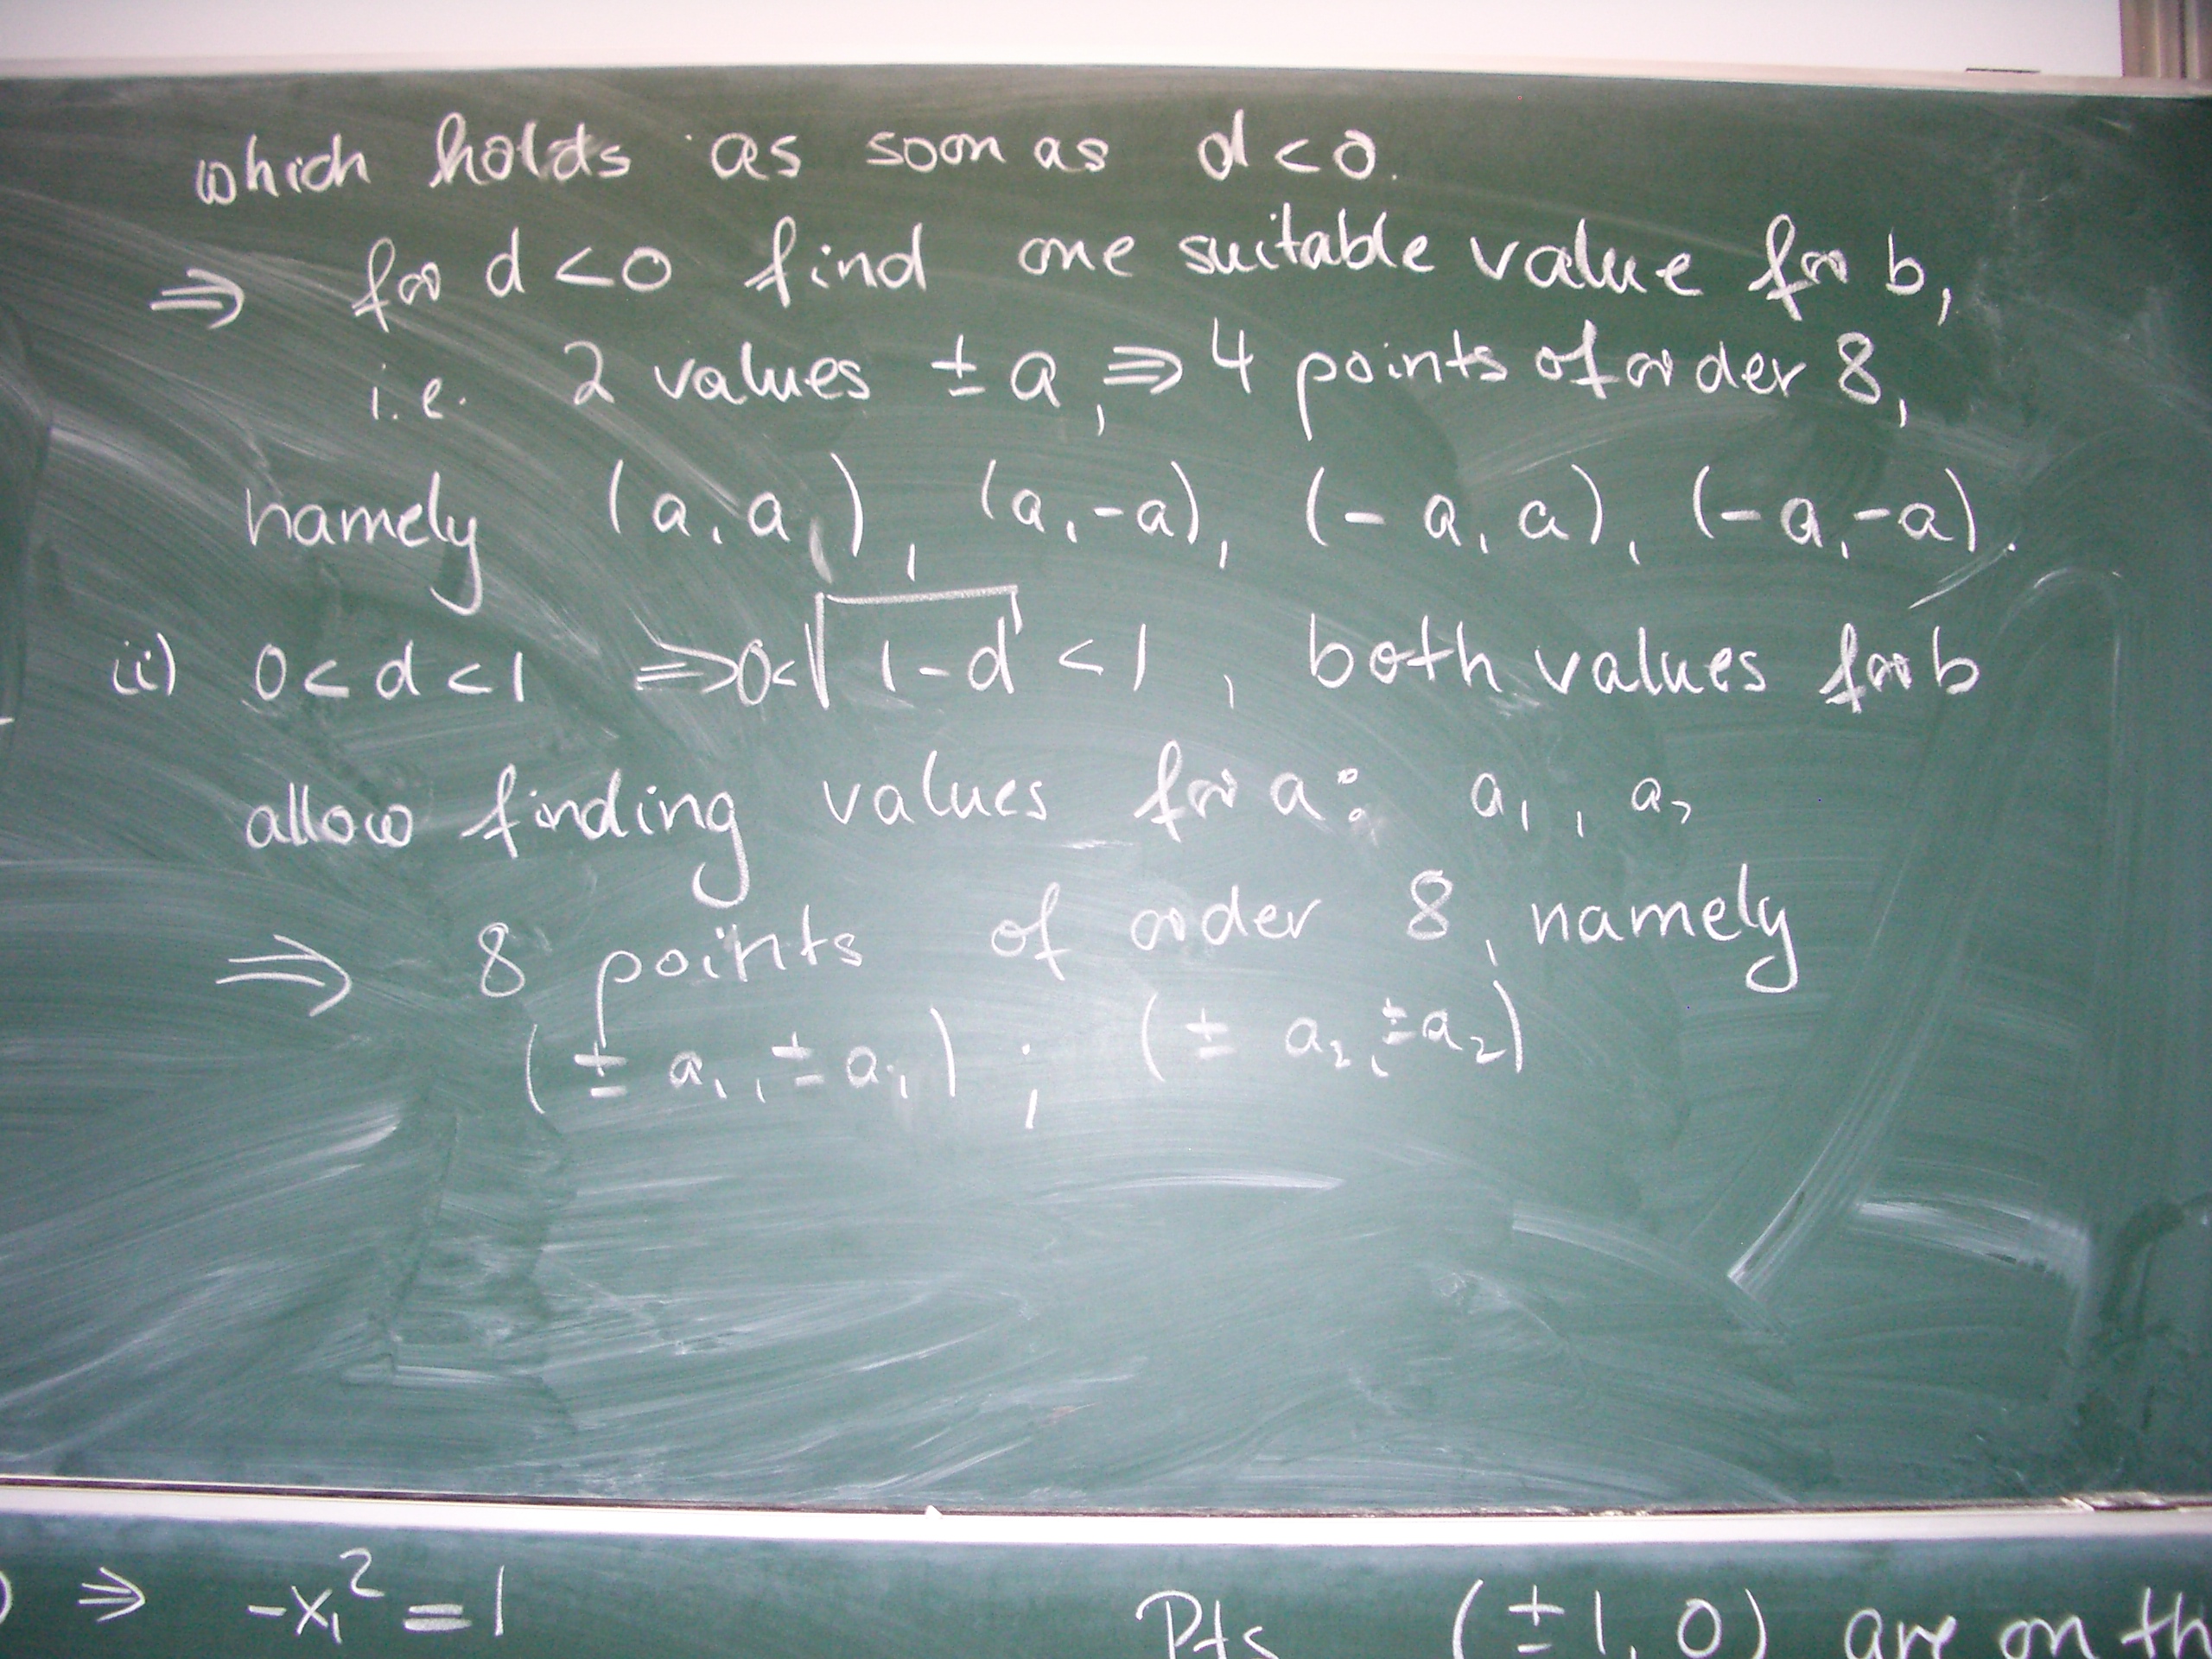 which holds as soon as d<0.
⇒ for d<0 find one suitable value for b,
i.e. 2 values ±a, ⇒ 4 points of order 8,
namely (a,a), (a,-a), (-a,a), (-a,-a).
ii) 0<d<1 ⇒ 0<√(1-d) <1, both values for b
allow finding values for a: a₁, a₂
⇒ 8 points of order 8, namely
(±a₁,±a₁); (±a₂,±a₂)
) ⇒ -x₁²=1 Pts (±1,0) are on th